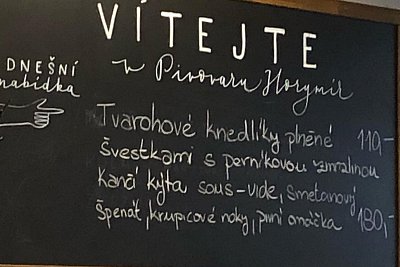 VÍTEJTE
v Pivovaru Horymír
DNEŠNÍ
nabídka
Tvarohové knedlíky plněné 110,-
Švestkami s perníkovou zmrzlinou
Kančí kýta sous-vide, smetanový
Špenát, krupicové noky, pivní omáčka 190,-